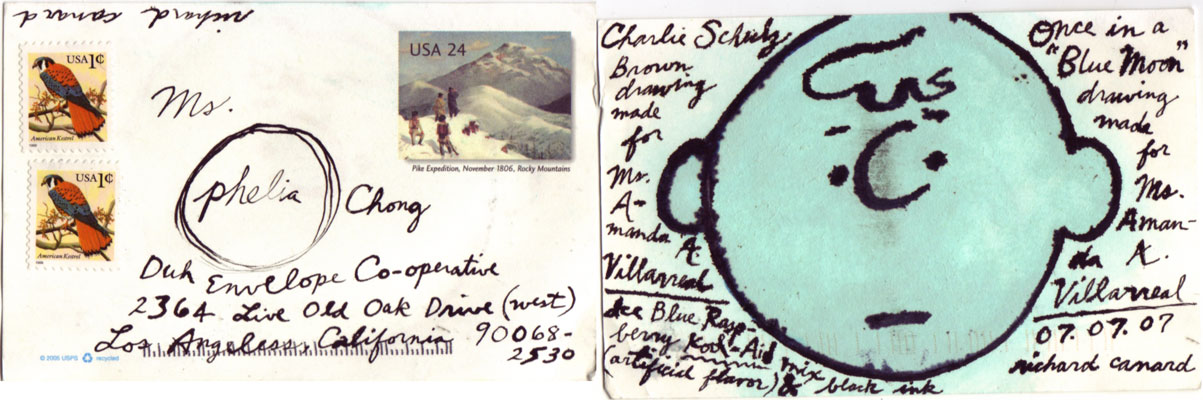 richard canard
USA 1¢
American Kestrel
USA 1¢
American Kestrel
USA 24
Pike Expedition, November 1806, Rocky Mountains
Ms.
phelia
Chong
Duh Envelope Co-operative
2364 Live Old Oak Drive (west)
Los Angeless, California 90068-
2530
© 2005 USPS recycled
Charlie Schulz
Brown
drawing
made
for
Ms.
A-
manda A.
Villarreal
Ice Blue Rasp-
berry Kool-Aid mix
(artificial flavor) & black ink
Once in a
"Blue Moon"
drawing
mada
for
Ms.
Aman-
da A.
Villarreal
07.07.07
richard canard